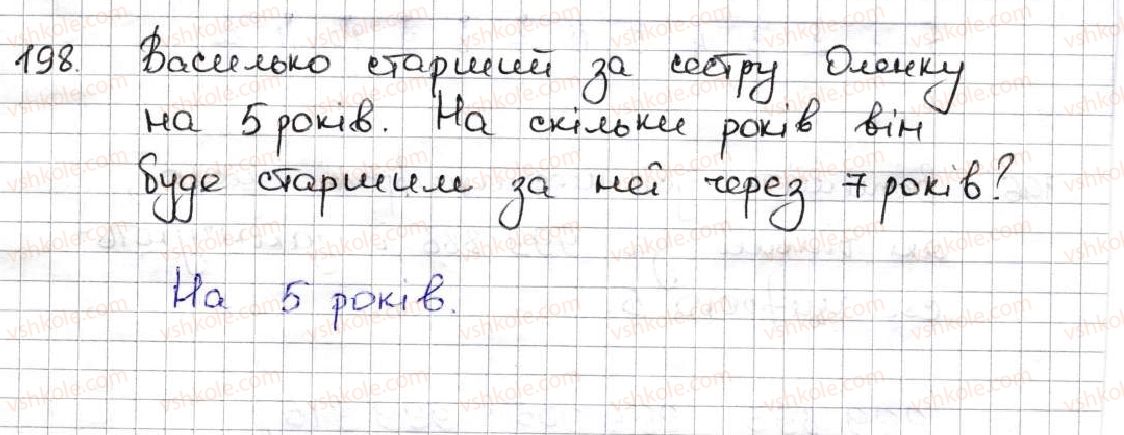 198. Василько старший за сестру Оленку
на 5 років. На скільки років він
буде старшим за неї через 7 років?
На 5 років.